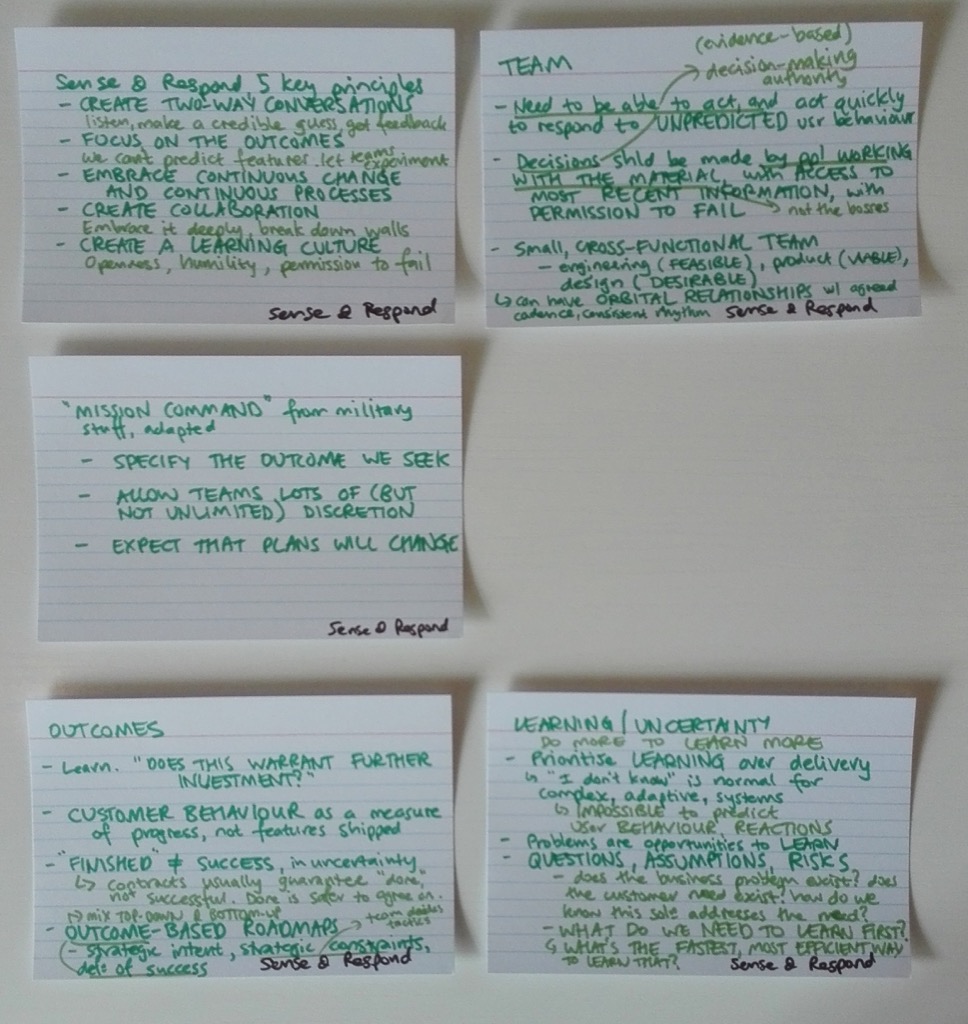 Sense & Respond, 5 key principles
- CREATE TWO-WAY CONVERSATIONS
listen, make a credible guess, get feedback
- FOCUS ON THE OUTCOMES
we can't predict features, let teams experiment
- EMBRACE CONTINUOUS CHANGE
AND CONTINUOUS PROCESSES
- CREATE COLLABORATION
Embrace it deeply, break down walls
- CREATE A LEARNING CULTURE
Openness, humility, permission to fail
Sense & Respond
TEAM
(evidence-based)
decision-making
authority
- Need to be able to act, and act quickly
to respond to UNPREDICTED usr behaviour
- Decisions shld be made by ppl WORKING
WITH THE MATERIAL, with ACCESS TO
MOST RECENT INFORMATION, with
PERMISSION TO FAIL → not the bosses
- SMALL, CROSS-FUNCTIONAL TEAM
- engineering (FEASIBLE), product (VIABLE),
design (DESIRABLE)
↳ can have ORBITAL RELATIONSHIPS w/ agreed
cadence, consistent rhythm
Sense & Respond
"MISSION COMMAND" from military
stuff, adapted
- SPECIFY THE OUTCOME WE SEEK
- ALLOW TEAMS LOTS OF (BUT
NOT UNLIMITED) DISCRETION
- EXPECT THAT PLANS WILL CHANGE
Sense & Respond
OUTCOMES
- Learn. "DOES THIS WARRANT FURTHER
INVESTMENT?"
- CUSTOMER BEHAVIOUR as a measure
of progress, not features shipped
- "FINISHED" ≠ SUCCESS, in uncertainty
↳ contracts usually guarantee "done,"
not successful. Done is safer to agree on.
↳ mix TOP-DOWN & BOTTOM-UP
- OUTCOME-BASED ROADMAPS
→ team decides
tactics
- strategic intent, strategic constraints,
def of success
Sense & Respond
LEARNING / UNCERTAINTY
DO MORE TO LEARN MORE
- Prioritise LEARNING over delivery
↳ "I don't know" is normal for
complex, adaptive, systems
↳ IMPOSSIBLE to predict
user BEHAVIOUR REACTIONS
- Problems are opportunities to LEARN
- QUESTIONS, ASSUMPTIONS, RISKS
- does the business problem exist? does
the customer need exist? how do we
know this soln addresses the need?
- WHAT DO WE NEED TO LEARN FIRST?
↳ WHAT'S THE FASTEST, MOST EFFICIENT WAY
TO LEARN THAT?
Sense & Respond